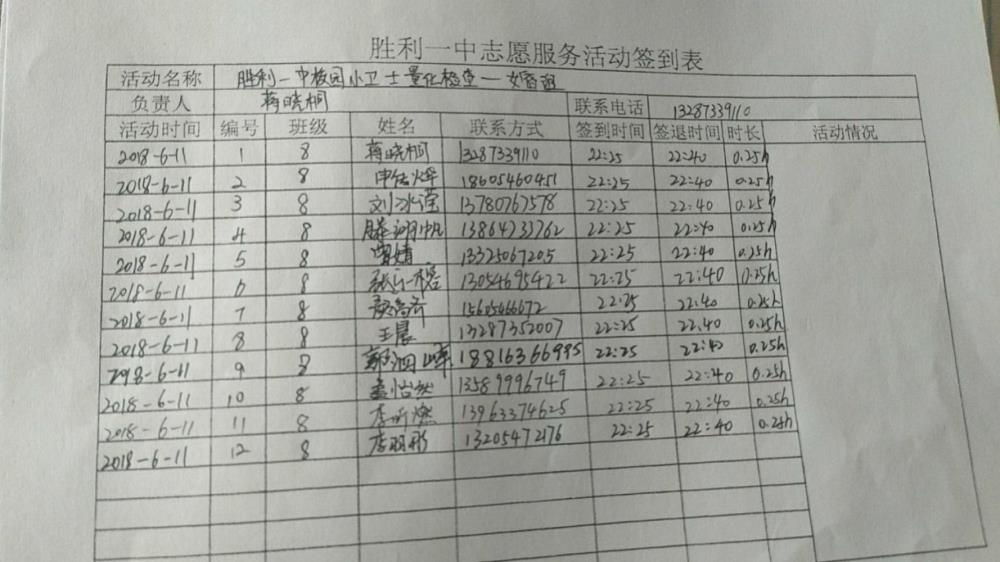 胜利一中志愿服务活动签到表
活动名称 胜利一中校园小卫士量化检查一
负责人 蒋晓桐 联系电话 13287339110
活动时间 编号 班级 姓名 联系方式 签到时间 签退时间 时长 活动情况
2018-6-11 1 8 蒋晓桐 13287339110 22:25 22:40 0.25h
2018-6-11 2 8 18605460451 22:25 22:40 0.25h
2018-6-11 3 8 刘冰滢 13780767578 22:25 22:40 0.25h
2018-6-11 4 8 22:25 22:40 0.25h
2018-6-11 5 8 13325067205 22:25 22:40 0.25h
2018-6-11 6 8 13054695422 22:25 22:40 0.25h
2018-6-11 7 8 22:25 22:40 0.25h
2018-6-11 8 8 王晨 13287352007 22:25 22:40 0.25h
2018-6-11 9 8 18816366995 22:25 22:40 0.25h
2018-6-11 10 8 13589996749 22:25 22:40 0.25h
2018-6-11 11 8 李昕燃 13963374625 22:25 22:40 0.25h
2018-6-11 12 8 李明彤 13205472176 22:25 22:40 0.25h